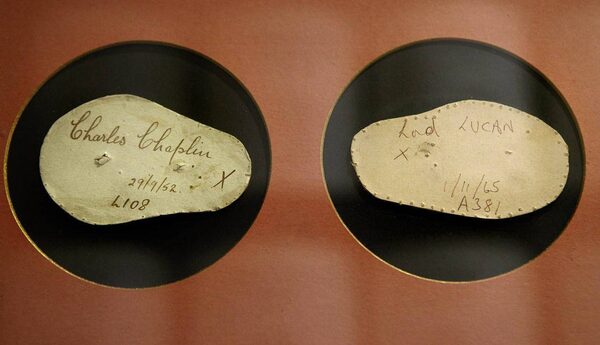 Charles Chaplin
29/9/52 X
L108
Lord LUCAN
X
1/11/65
A381